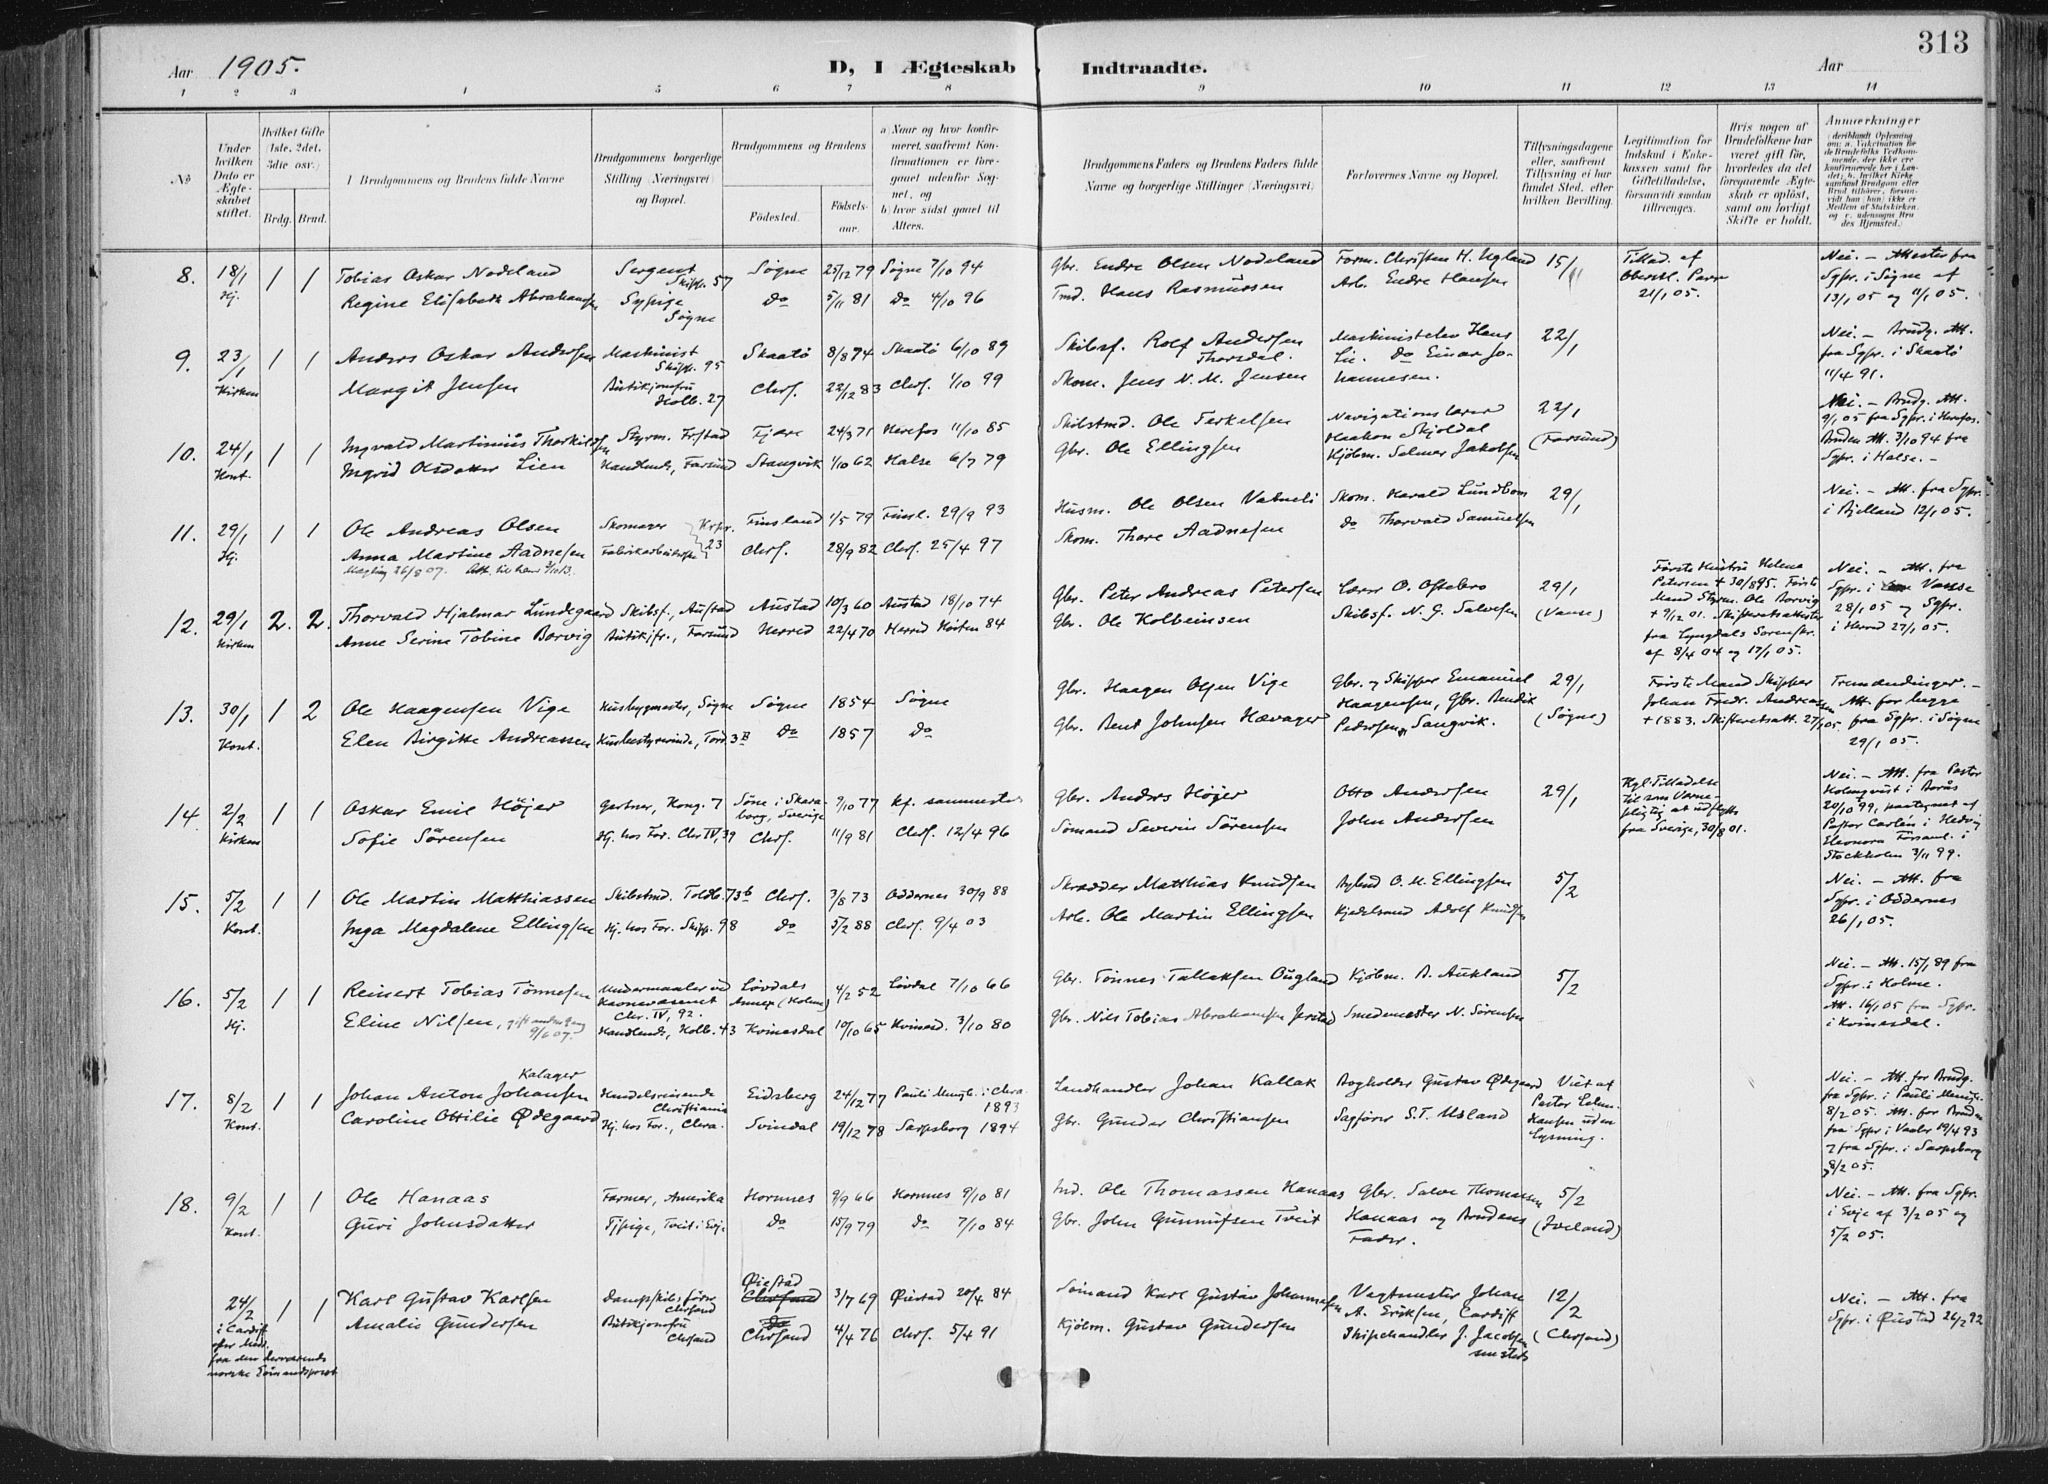 313
Aar 1905.
D, I Ægteskab Indtraadte.
Aar
1 2 3 4 5 6 7 8 9 10 11 12 13 14
№
Under hvilken Dato er Ægteskabet stiftet.
Hvilket Gifte (1ste, 2det, 3die osv.)
Brdg. Brud.
1 Brudgommens og Brudens fulde Navne
Brudgommens borgerlige Stilling (Næringsvei) og Bopæl.
Brudgommens og Brudens
Födested. Födselsaar.
a) Naar og hvor konfirmeret, saafremt Konfirmationen er foregaaet udenfor Sognet, og
b) hvor sidst gaaet til Alters.
Brudgommens Faders og Brudens Faders fulde Navne og borgerlige Stillinger (Næringsvei).
Forlovernes Navne og Bopæl.
Tillysningsdagene eller, saafremt Tillysning ei har fundet Sted, efter hvilken Bevilling.
Legitimation for Indskud i Enkekassen samt for Giftetilladelse, forsaavidt saadan tiltrænges.
Hvis nogen af Brudefolkene har været gift för, hvorledes da det foregaaende Ægteskab er oplöst, samt om lovligt Skifte er holdt.
Anmærkninger
(deriblandt Oplysning om: a. Vakcination for de Brudefolks Vedkommende, der ikke ere konfirmerede her i Landet; b. hvilket Kirkesamfund Brudgom eller Brud tilhörer, forsaavidt han (hun) ikke er Medlem af Statskirken, og c. udensogns Brudes Hjemsted.
8. 18/1 Hj. 1 1 Tobias Oskar Nodeland Sergent Skipp. 57 Søgne 25/12 79 Søgne 7/10 94 Gbr. Endre Olsen Nodeland Form. Christen H. Ugland 15/1 Tillad. af Nei. – Attester fra
Regine Elisabeth Abrahamsen Sypige Søgne Do 5/11 81 Do 4/10 96 Tmd. Hans Rasmussen Arb. Endre Hansen 21/1 05. Sgpr. i Søgne af 13/1 05 og 11/1 05.
9. 23/1 Kirken 1 1 Anders Oskar Andersen Maskinist Skipp. 95 Skaatø 8/8 74 Skaatø 6/10 89 Skibsf. Rolf Andersen Thorsdal. Maskinistelev Hans Lie. do Einar Johannesen. 22/1 Nei. – Brudg. Att. fra Sgpr. i Skaatø 11/4 91.
Margit Jensen Butikjomfru Holb. 27 Chrs. 22/12 83 Chrs. 1/10 99 Skom. Jens N. M. Jensen
10. 24/1 Kont. 1 1 Ingvald Martinius Thorkildsen Styrm. Frstad Fjære 24/3 71 Herefos 11/10 85 Skibstmd. Ole Terkelsen Navigationslærer Haakon Skjoldal 22/1 (Farsund) Nei. – Brudg. Att. 9/1 05 fra Sgpr. i Herefos.
Ingrid Olsdatter Lien Handlende, Farsund Stangvik 1/10 62 Halse 6/7 79 Gbr. Ole Ellingsen Kjøbm. Selmer Jakobsen Bruden Att. 3/10 94 fra Sgpr. i Halse. –
11. 29/1 Hj. 1 1 Ole Andreas Olsen Skomager Finsland 1/5 79 Finsl. 29/9 93 Husm. Ole Olsen Vatneli Skom. Harald Lundbom 29/1 Nei. – Att. fra Sgpr. i Bjelland 12/1 05.
Anna Martine Aadnesen Fabrikarbeiderske 23 Chrs. 28/9 82 Chrs. 25/4 97 Skom. Thore Aadnesen do Thorvald Samuelsen
12. 29/1 Kirken 2. 2. Thorvald Hjalmar Lundegaard Skibsf., Austad Austad 10/3 60 Austad 18/10 74 Gbr. Peter Andreas Petersen Lærer O. Oftebro 29/1 (Vanse) Første Hustru Helene Petersen + 30/8 95. Første Mand Styrm. Ole Borvig + 9/12 01. Skifteretsattester fra Lyngdals Sorenskr. af 8/4 04 og 17/1 05. Nei. – Att. fra Sgpr. i Vanse 28/1 05 og Sgpr. i Herred 27/1 05.
Anne Serine Tobine Borvig Butikjfr., Farsund Herred 22/4 70 Herred Høsten 84 Gbr. Ole Kolbeinsen Skibsf. N. G. Salvesen
13. 30/1 Kont. 1 2 Ole Haagensen Vige Husbygmester, Søgne Søgne 1854 Søgne Gbr. Haagen Olsen Vige Gbr. og Skipper Emanuel Haagensen, Gbr. Bendik Pedersen, Sangvik. 29/1 (Søgne) Første Mand Skipper Johan Fredr. Andreassen + 1883. Skifteretsatt. 27/1 05. Tremændinger. – Att. for begge fra Sgpr. i Søgne 29/1 05.
Elen Birgitte Andreassen Husbestyrerinde, Tord. 3B Do 1857 Do Gbr. Bent Johnsen Hævager
14. 2/2 Kirken 1 1 Oskar Emil Höjer Gartner, Kong. 7 Söne i Skaraborg, Sverige 9/10 77 kf. sammesteds Gbr. Anders Höjer Otto Andersen 29/1 Kgl. Tilladelse til som Værnepligtig at udflytte fra Sverige, 30/8 01. Nei. – Att. fra Pastor Holmqvist i Borås 20/10 99, paategnet af Pastor Carlén i Hedvig Eleonora Församl. i Stockholm 3/11 99.
Sofie Sörensen Hj. hos For. Chr IV, 39 Chrs. 11/9 81 Chrs. 12/4 96 Sömand Severin Sörensen John Andersen
15. 5/2 Kont. 1 1 Ole Martin Matthiassen Skibstmd. Toldb. 73b Chrs. 3/8 73 Oddernes 30/9 88 Skrædder Matthias Knudsen Bybud O. M. Ellingsen 5/2 Nei. – Att. fra Sgpr. i Oddernes 26/1 05.
Inga Magdalene Ellingsen Hj. hos For. Skipp. 98 Do 5/2 88 Chrs. 9/4 03 Arb. Ole Martin Ellingsen Kjedelsmed Adolf Knudsen
16. 5/2 Hj. 1 1 Reinert Tobias Tönnesen Undermaaler ved Havnevæsenet Chr. IV, 92. Løvdals Annex (Holme) 4/2 52 Løvdal 7/10 66 Gbr. Tönnes Tallaksen Ougland Kjöbm. B. Aukland 5/2 Nei. – Att. 15/1 89 fra Sgpr. i Holme.
Eline Nilsen, gift anden gang 9/6 07. Handlende, Holb. 43 Kvinesdal 10/10 65 Kvinesd. 3/10 80 Gbr. Nils Tobias Abrahamsen Jerstad Smedemester N. Sörensen Att. 16/1 05 fra Sgpr. i Kvinesdal.
17. 8/2 Kont. 1 1 Johan Anton Johansen Kalager Handelsreisende Christiania Eidsberg 24/12 77 Pauli Mengh. i Chra. 1893 Landhandler Johan Kallak Bogholder Gustav Ødegaard Viet af Pastor Hansen uden Lysning. Nei. – Att. for Brudg. fra Sgpr. i Pauli Menigh. 8/2 05. Att. for Bruden fra Sgpr i Vaaler 19/4 93 og fra Sgpr. i Sarpsborg 8/2 05.
Caroline Ottilie Ødegaard Hj. hos For., Chra. Svindal 19/12 78 Sarpsborg 1894 Gbr. Gunder Christiansen Sagfører S. T. Usland
18. 9/2 Kont. 1 1 Ole Hanaas Farmer, Amerika Hornnes 9/9 66 Hornnes 9/10 81 Ind. Ole Thomassen Hanaas Gbr. Salve Thomassen Hanaas og Brudens Fader. 5/2 (Iveland) Nei. – Att. fra Sgpr. i Evje af 3/2 05 og 5/2 05.
Guri Johnsdatter Tjpige, Tveit i Evje Do 15/9 79 Do 7/10 84 Gbr. John Gunnufsen Tveit
24/2 i Cardiff 1 1 Karl Gustav Karlsen Dampskibsförer Chrsand Øiestad Chrsand 3/7 69 Øiestad 20/4 84 Sömand Karl Gustav Johannesen Vagtmester Johan A. Eriksen, Cardiff 12/2 (Chrsand) Nei. – Att. fra Sgpr. i Øiestad 26/2 92
efter Medd. fra den derværende norske Sömandsprest Amalie Gundersen Butikjomfru Chrsand Do Chrsand 4/4 76 Chrs. 5/4 91 Kjöbm. Gustav Gundersen Shipchandler J. Jacobsen smsteds